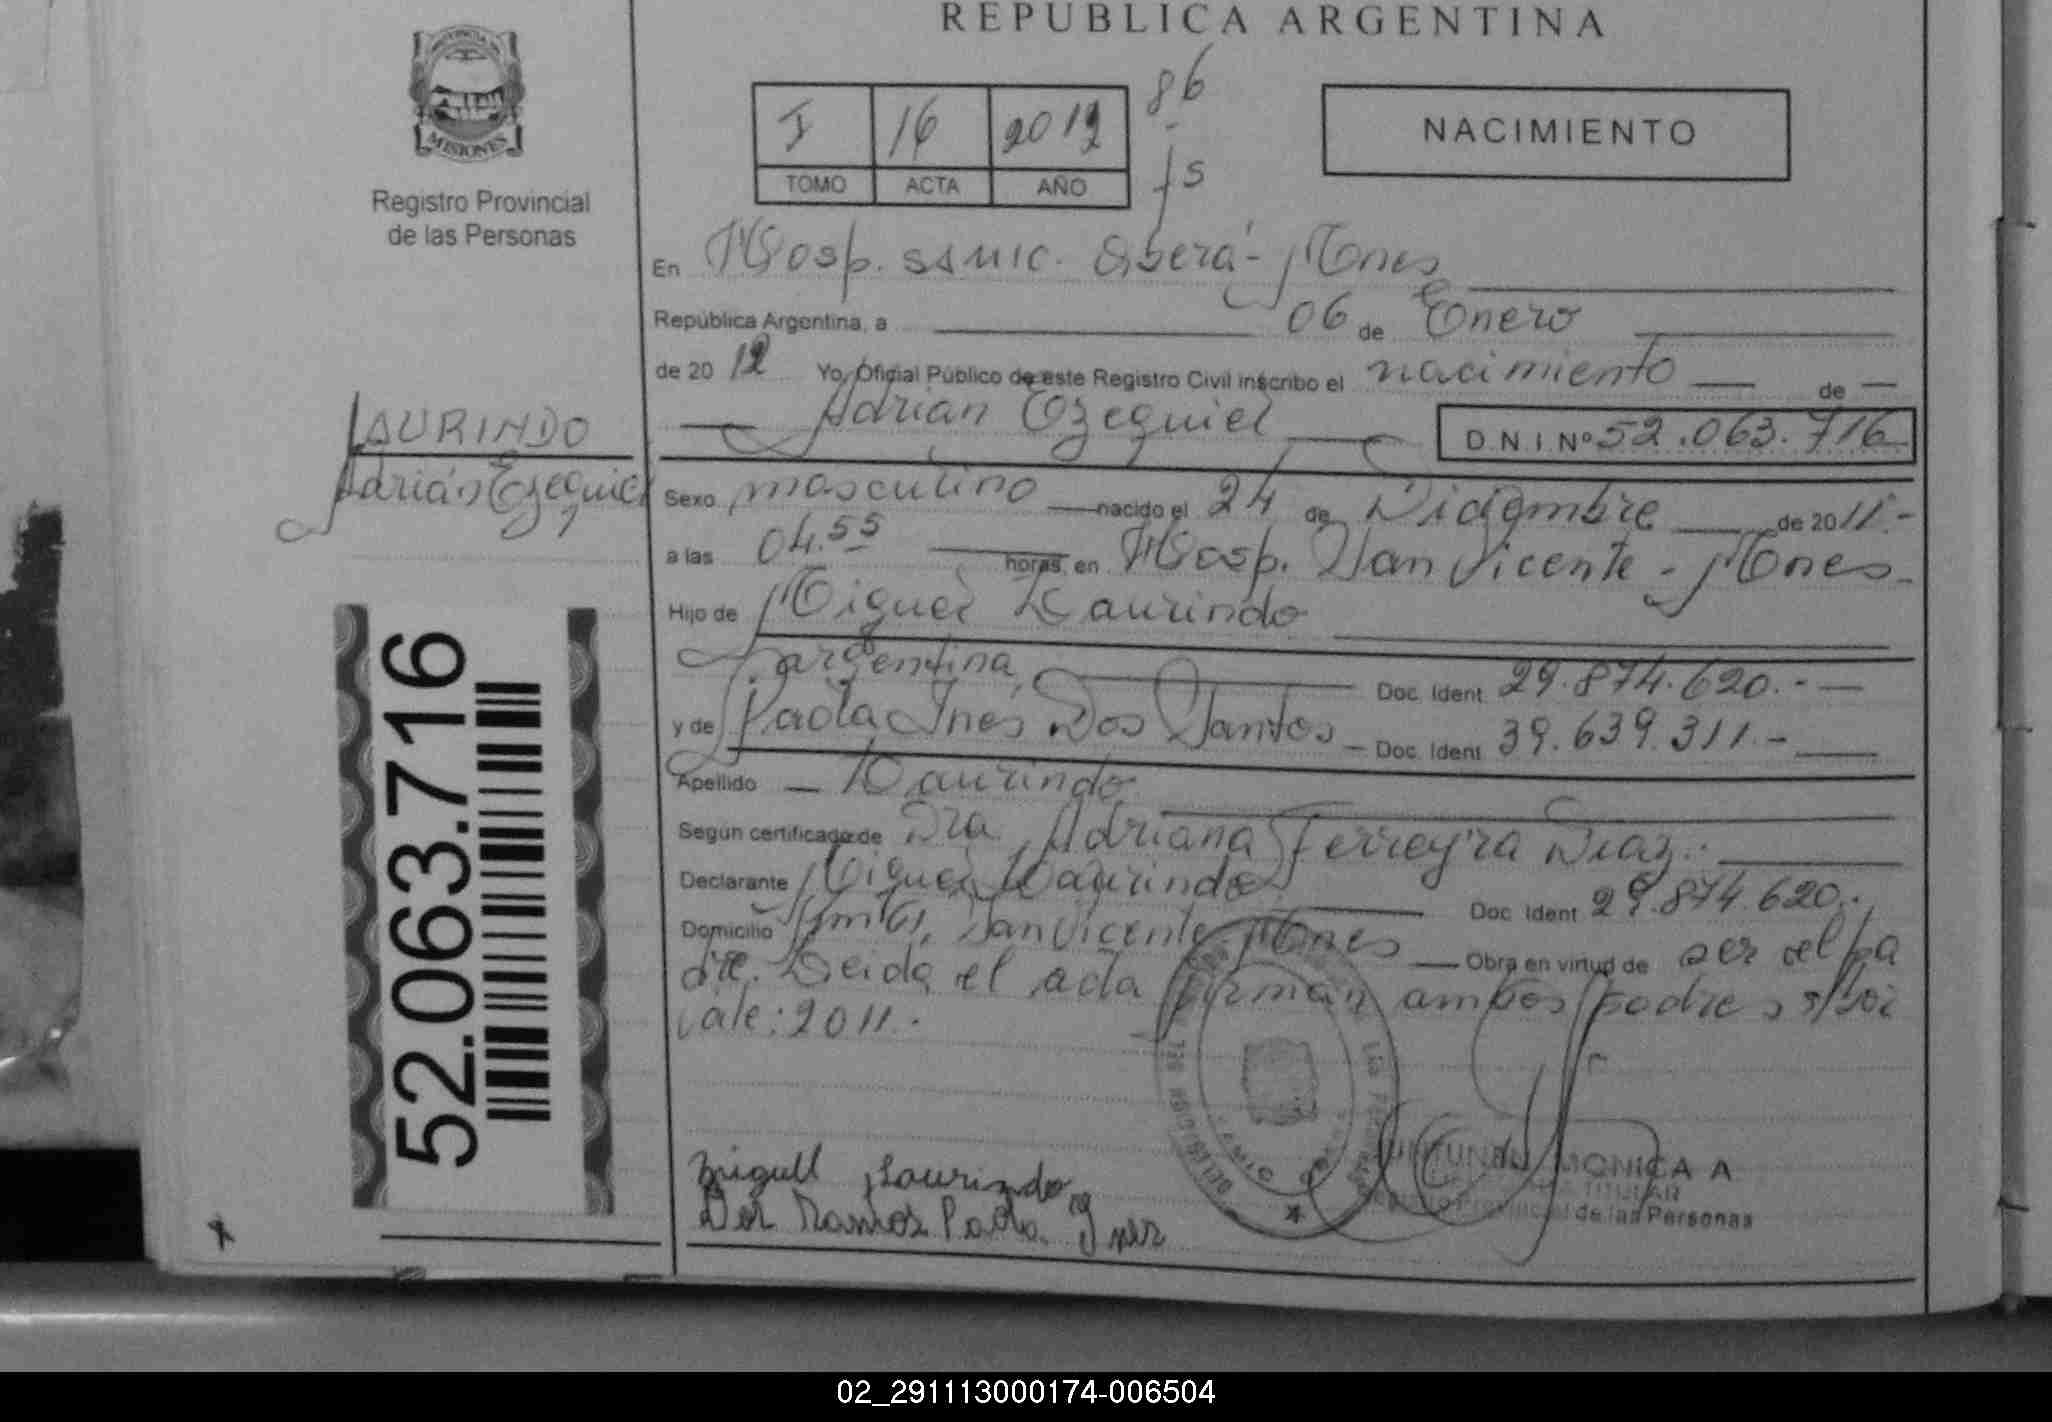 REPUBLICA ARGENTINA
MISIONES
Registro Provincial
de las Personas
I 16 2012 86
TOMO ACTA AÑO fs
NACIMIENTO
En Hosp. SAMIC. Oberá - Mnes
República Argentina, a 06 de Enero
de 2012 Yo, Oficial Público de este Registro Civil inscribo el nacimiento de
Adrián Ezequiel D.N.I. Nº 52.063.716
LAURINDO
Adrián Ezequiel
Sexo masculino nacido el 24 de Diciembre de 2011.-
a las 04.55 horas, en Hosp. San Vicente - Mnes -
Hijo de Miguel Laurindo
argentina Doc. Ident. 29.874.620.-
y de Paola Inés Dos Santos - Doc. Ident. 39.639.311.-
Apellido - Laurindo
Según certificado de Dra. Adriana Ferreyra Diaz.
Declarante Miguel Laurindo Doc. Ident. 29.874.620.-
Domicilio San Vicente Mnes Obra en virtud de ser el pa
dre. Leida el acta firman ambos padres s/
vale: 2011.-
52.063.716
Miguel Laurindo
Dos Paola Ines
MONICA A
TITULAR
Registro Provincial de las Personas
02_291113000174-006504